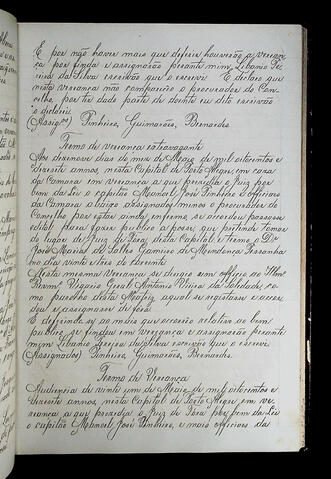 E por não haver mais que deferir houverão a verean-
ça por finda e assignarão perante mim Libanio Pe-
reira da Silva escrivão que o escrevi. E declaro que
nesta vereança não compareceo o procurador do Con-
celho, por ter dado parte de doente eu dito escrivão
o declarei
(Assigos) Pinheiro, Guimarães, Bernardes.
Termo de vereança extravagante
Aos dezenove dias do mez de Maio de mil oitocentos e
dezesete annos, nesta Capital de Porto Alegre, em casa
da Camara em vereança a que presidio o Juiz por
bem da Lei o capitão Manoel José Pinheiro e officiaes
da Camara abaixo designados menos o procurador do
Concelho por estar ainda enfermo, se accordou passasse
edital para fazer publico a posse que pretende tomar
do lugar de Juiz de Fora desta Capital e Termo o Dr
José Maria de Salles Gameiro de Mendonça Pessanha
no dia vinte e tres do corrente
Nesta mesma vereança se dirigio um officio ao Illmo
Revmo Vigario Geral Antonio Vieira da Soledade, co-
mo parocho desta Matriz, aqual se registara e accor-
dou e assignarão de fora
E deferindo se ao mais que occorreo relativo ao bem
publico se findou em vereança e assignarão perante
mim Libanio Pereira da Silva escrivão que o escrevi
(Assignados) Pinheiro, Guimarães, Bernardes.
Termo de Vereança
Audiencia de vinte um de Maio de mil oitocentos e
dezesete annos, nesta Capital de Porto Alegre em ve-
reança a que presidio o Juiz de Fora por bem da Lei
o capitão Manoel José Pinheiro, e mais officiaes da